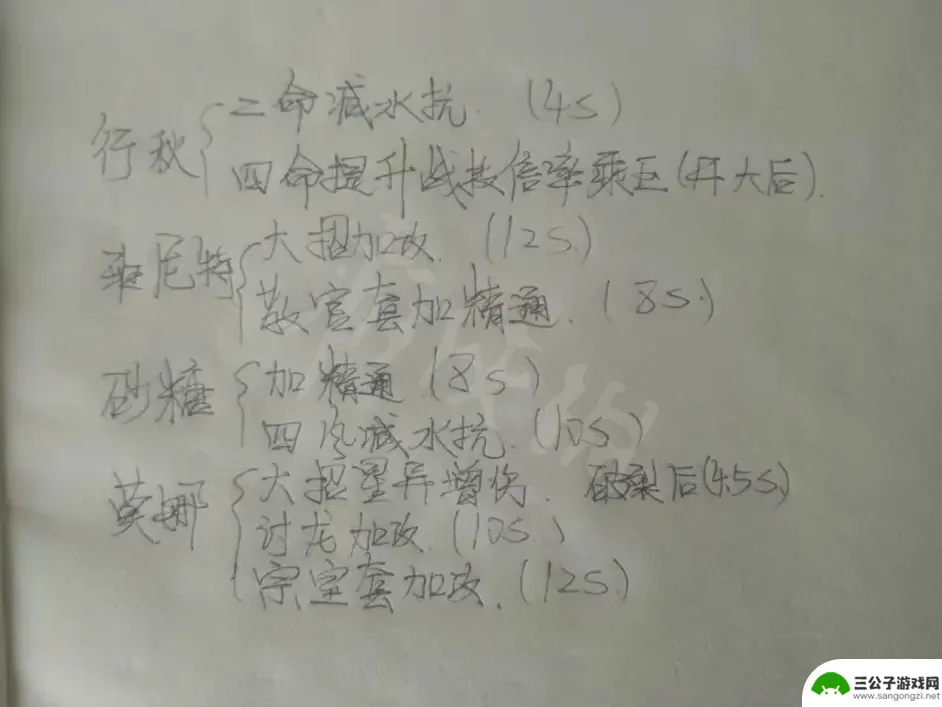 行秋
二命减水抗. (4s)
四命提升战技倍率乘区(开大后).
班尼特
大招加攻. (12s.)
教官套加精通. (8s.)
砂糖
加精通 (8s)
四风减水抗. (10s)
莫娜
大招星异增伤. 破裂后(4.5s.)
讨龙加攻. (10s.)
宗室套加攻. (12s.)
三公子游戏网
www.sangongzi.net